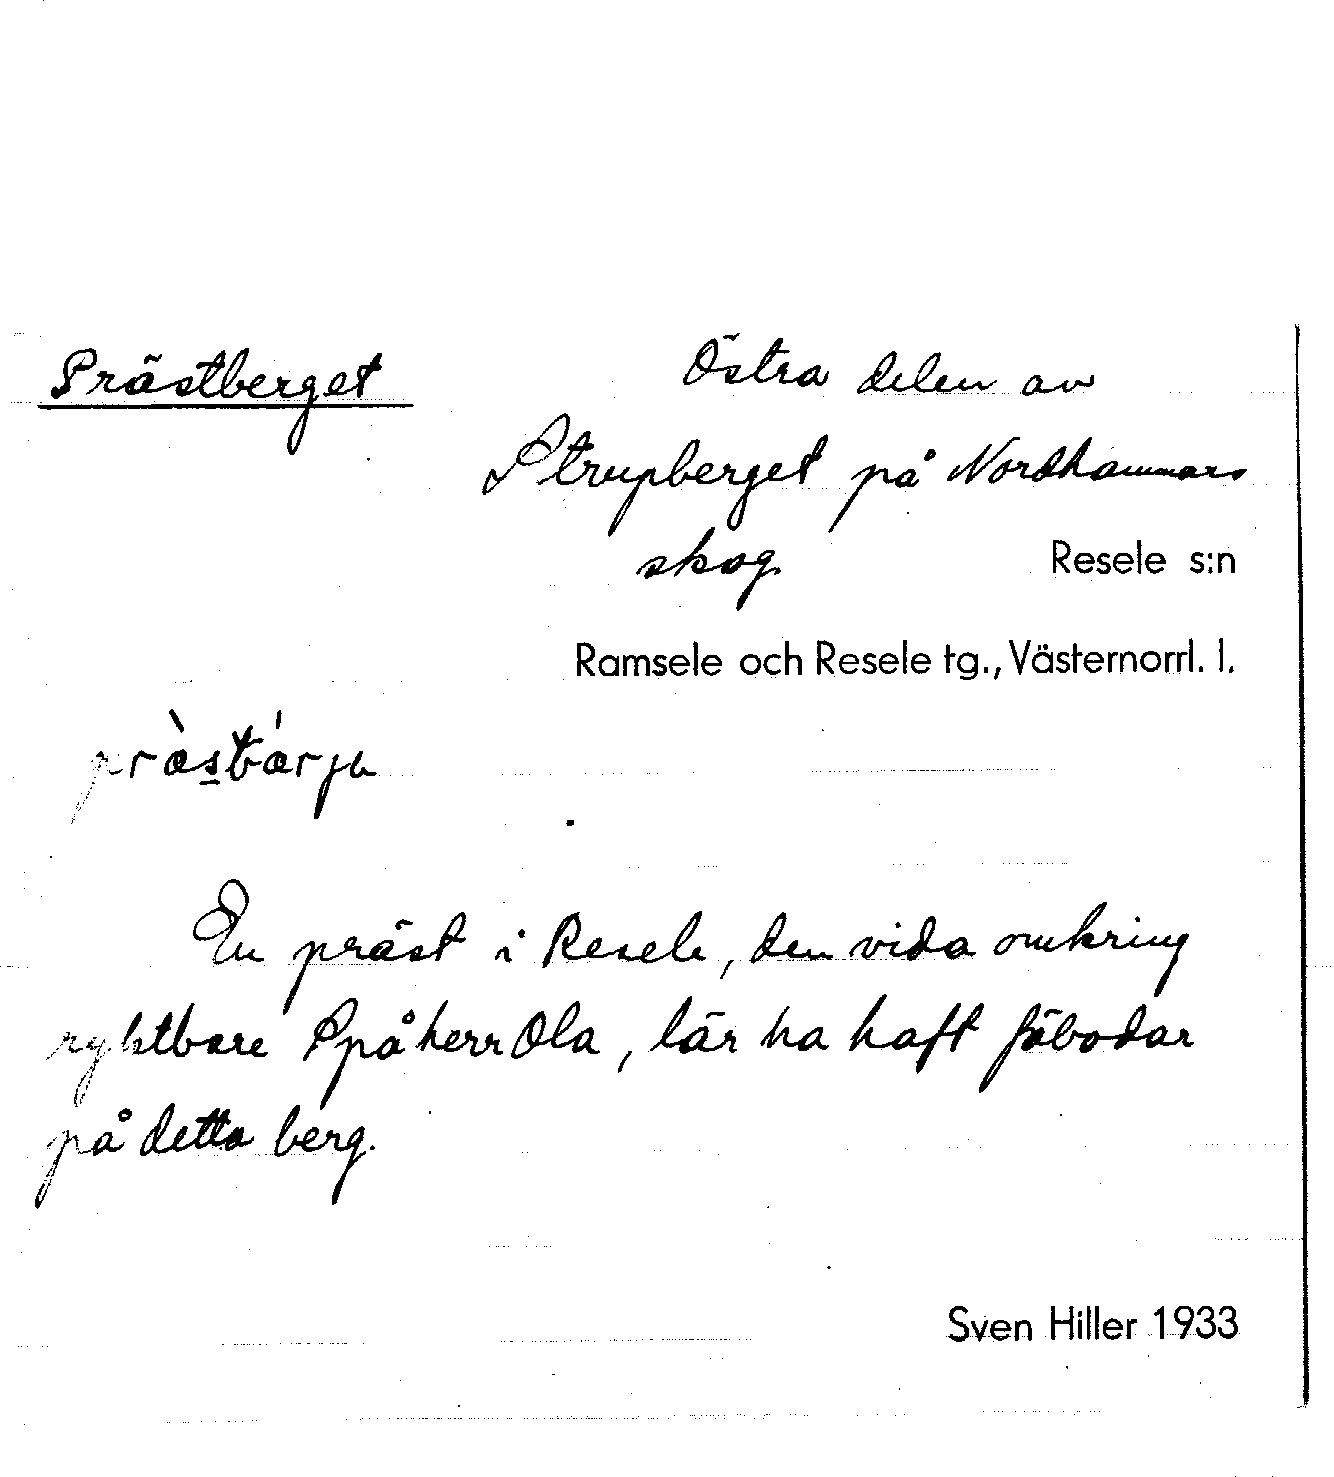 Prästberget
Östra delen av
Strupberget på Nordhammars
skog.
Resele s:n
Ramsele och Resele tg., Västernorrl. l.
En präst i Resele, den vida omkring
ryktbare Spåherr Ola, lär ha haft fäbodar
på detta berg.
Sven Hiller 1933